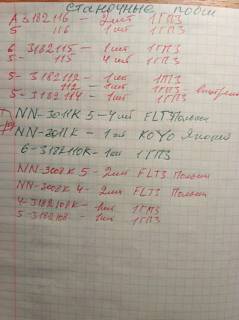 Станочные подш
А 3182116 - 2шт 1ГПЗ
5 116 - 1шт 1ГПЗ
6 3182115 - 1шт 1ГПЗ
5- 115 4шт 1ГПЗ
5- 3182112 - 1шт 1ГПЗ
112 - 1шт 1ГПЗ
5- 3182114 - 1шт 1ГПЗ
NN-3011K 5 - 4шт FLT Польша
NN-3011K - 1шт KOYO Япония
6-3182110К - 1шт 1ГПЗ
NN-3008K 5 - 2шт FLT3 Польша
NN-3008K 4 - 2шт FLT3 Польша
4-3182108К - 1шт 1ГПЗ
5-3182108 - 1шт 1ГПЗ